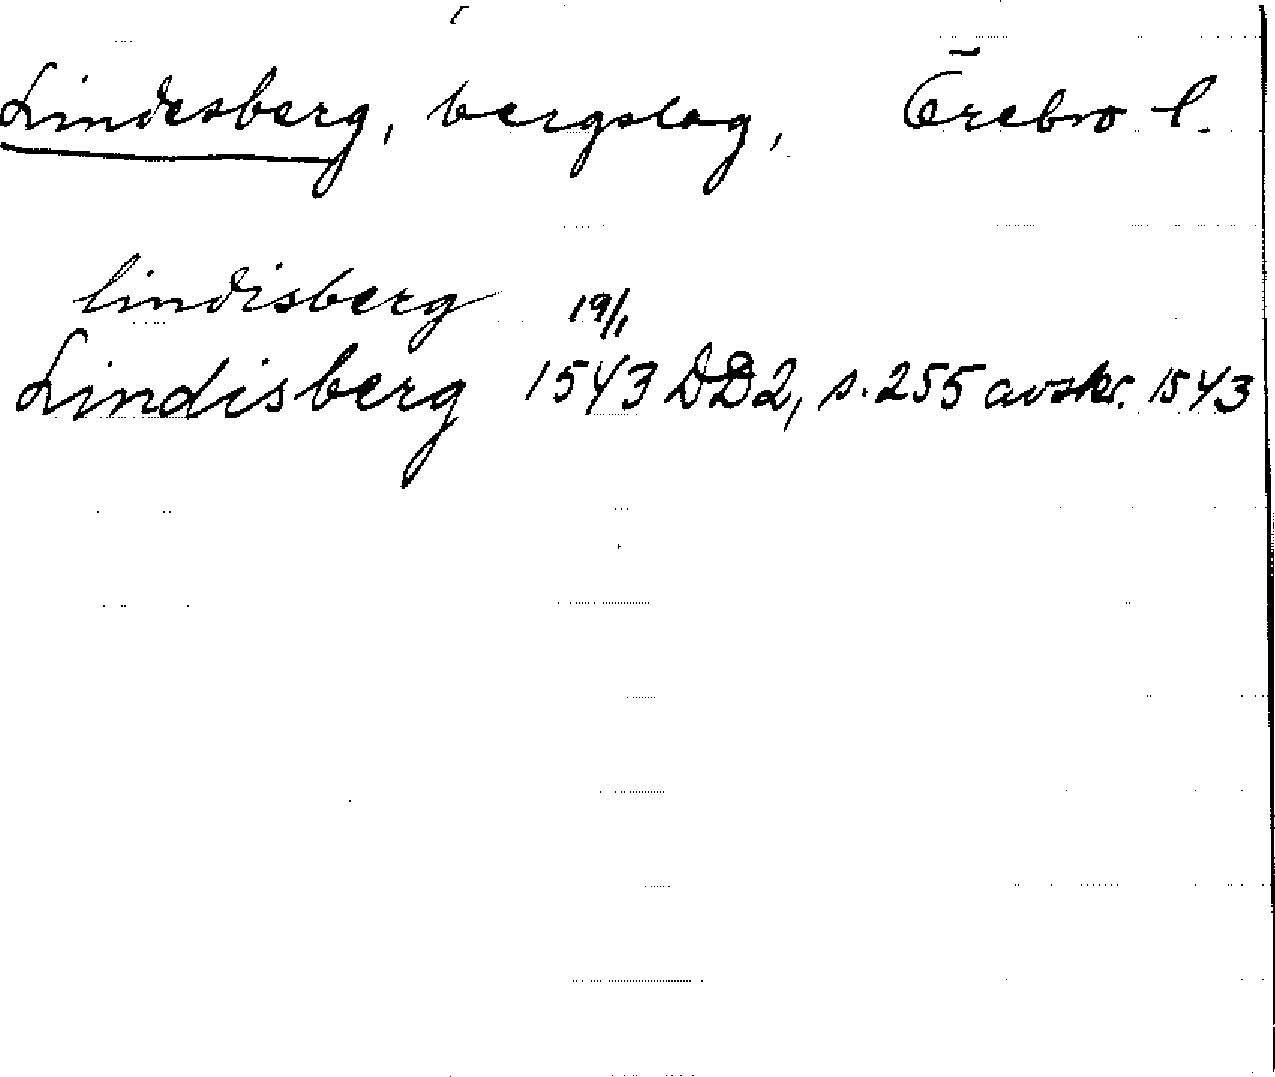 Lindesberg, bergslag, Örebro l.
lindisberg 19/1
Lindisberg 1543 DD2, s. 255 avskr. 1543